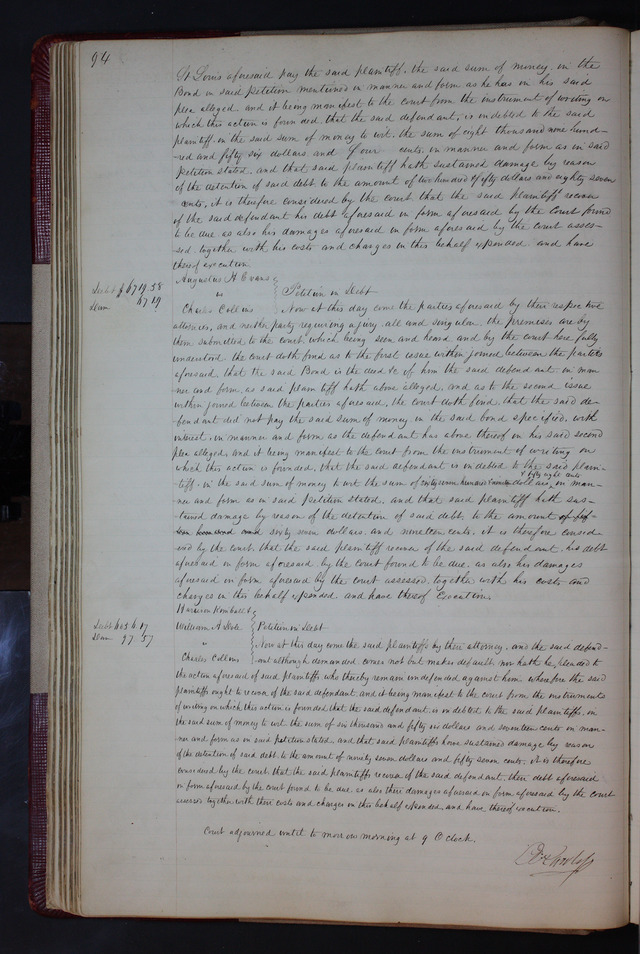 94
St Louis aforesaid pay the said plaintiff, the said sum of money in the
Bond in said petition mentioned in manner and form as he has in his said
plea alleged, and it being manifest to the court from the instrument of writing on
which this action is founded, that the said defendant, is indebted to the said
plaintiff, in the said sum of money to wit, the sum of eight thousand nine hund-
-red and fifty six dollars and Four cents, in manner and form as in said
petition stated, and that said plaintiff hath sustained damage by reason
of the detention of said debt to the amount of two hundred & fifty dollars and eighty seven
cents, it is therefore considered by the court that the said plaintiff recover
of the said defendant his debt aforesaid in form aforesaid by the Court found
to be due as also his damages aforesaid in form aforesaid by the court asses-
sed, together with his costs and charges in this behalf expended and have
thereof execution
Augustus H Evans
Debt $ 6719.58
vs Petition in Debt
Dam 67 19
Charles Collins Now at this day come the parties aforesaid by their respective
attornies, and neither party requiring a jury, all and singular, the premises are by
them submitted to the court, which being seen and heard and by the court here fully
understood the court doth find as to the first issue within joined between the parties
aforesaid, that the said Bond is the deed &c of him the said defendant, in man-
ner and form as said plaintiff hath above alleged, and as to the second issue
within joined between the parties aforesaid, the court doth find, that the said de-
fendant did not pay the said sum of money in the said bond specified, with
interest, in manner and form as the defendant has above thereof in his said second
plea alleged, and it being manifest to the court from the instrument of writing on
which this action is founded, that the said defendant is indebted to the said plain-
& fifty eight cents
tiff, in the said sum of money to wit the sum of sixty seven hundred & nineteen dollars in man-
ner and form as in said Petition stated, and that said plaintiff hath sus-
tained damage by reason of the detention of said debt, to the amount of
sixty seven dollars, and nineteen cents, it is therefore consid-
ered by the court, that the said plaintiff recover of the said defendant, his debt
aforesaid in form aforesaid by the court found to be due, as also his damages
aforesaid in form aforesaid by the court assessed, together with his costs and
charges in this behalf expended, and have thereof Execution,
Harrison Kimball &
Debt 6056.17
William A Dole Petition in Debt
Dam 97 57
" Now at this day come the said plaintiffs by their attorney, and the said defend-
Charles Collins -ant although demanded comes not but makes default, nor hath he pleaded to
the action aforesaid of said plaintiffs, who thereby remain undefended against him, wherefore the said
plaintiffs ought to recover of the said defendant, and it being manifest to the court from the instruments
of writing on which this action is founded, that the said defendant is indebted to the said plaintiffs, in
the said sum of money to wit, the sum of six thousand and fifty six dollars and seventeen cents in man-
ner and form as in said petition stated, and that said plaintiffs have sustained damage by reason
of the detention of said debt, to the amount of ninety seven dollars and fifty seven cents, it is therefore
considered by the court, that the said plaintiffs recover of the said defendant, their debt aforesaid
in form aforesaid by the court found to be due, as also their damages aforesaid in form aforesaid by the court
assessed together with their costs and charges in this behalf expended, and have thereof execution.
Court adjourned until to morrow morning at 9 O clock.